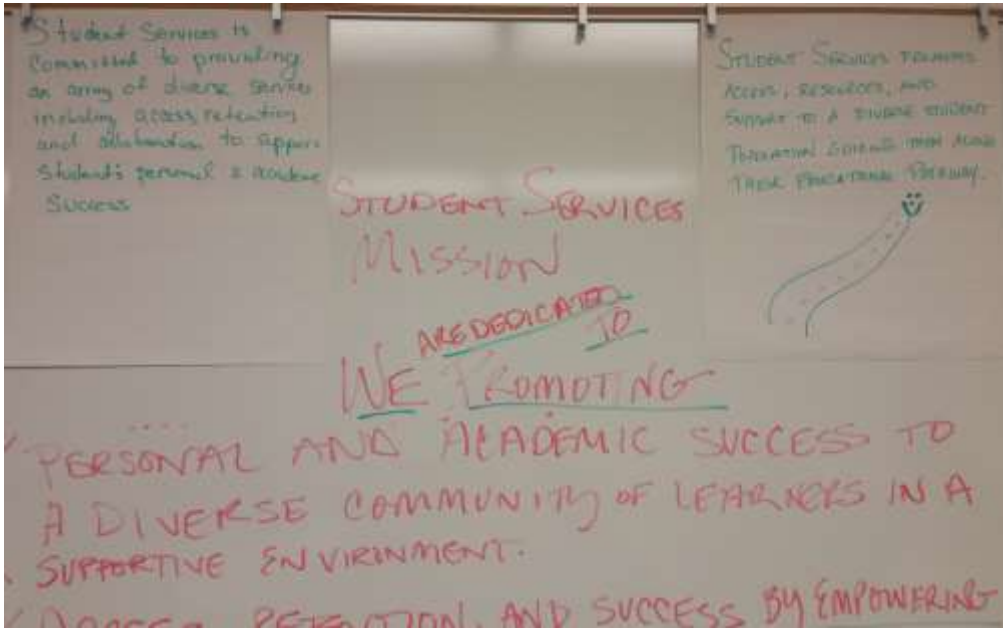 Student Services is
committed to providing
an array of diverse services
including access, retention
and collaboration to support
student's personal & academic
success
STUDENT SERVICES PROVIDES
ACCESS, RESOURCES, AND
SUPPORT TO A DIVERSE STUDENT
POPULATION GUIDING THEM ALONG
THEIR EDUCATIONAL PATHWAY.
STUDENT SERVICES
MISSION
ARE DEDICATED
TO
WE PROMOTING
PERSONAL AND ACADEMIC SUCCESS TO
A DIVERSE COMMUNITY OF LEARNERS IN A
SUPPORTIVE ENVIRONMENT.
ACCESS, RETENTION, AND SUCCESS BY EMPOWERING